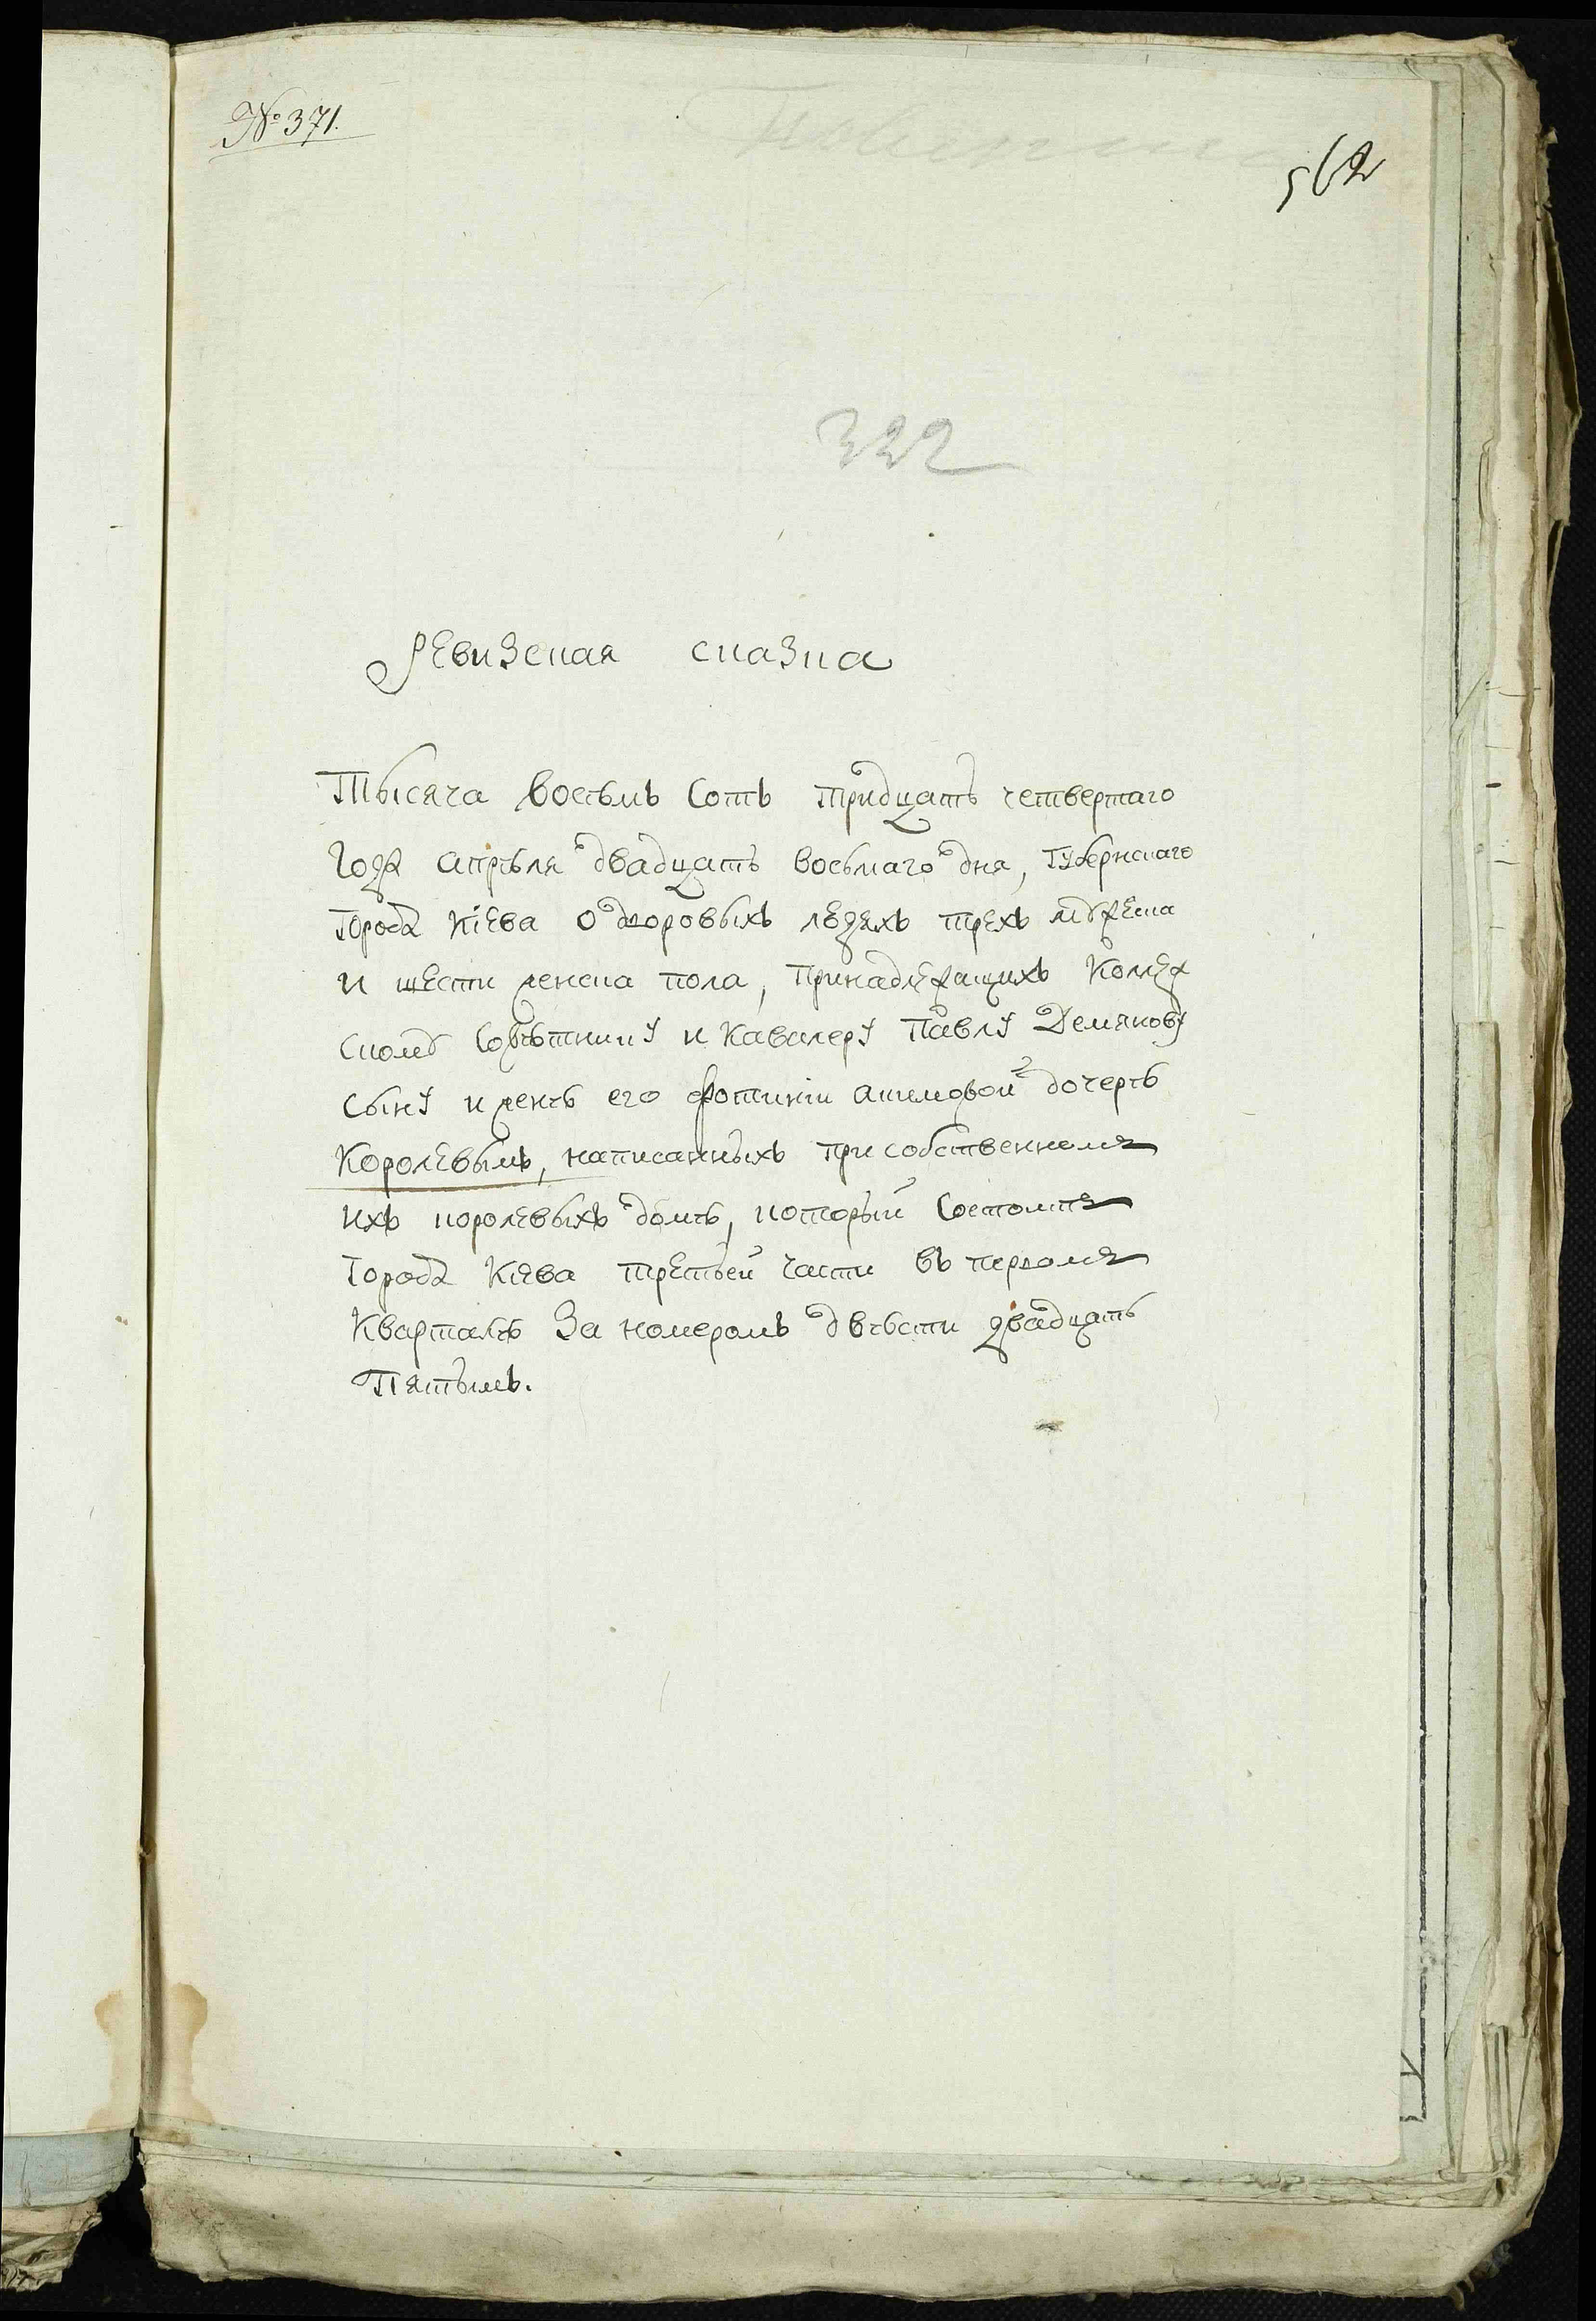 № 371.
562
322
Ревизская сказка
Тысяча восемь сотъ тридцать четвертаго
года апреля двадцать восьмаго дня, Губернскаго
города Кіева о дворовыхъ людяхъ трехъ мужеска
и шести женска пола, принадлежащихъ Колеж
скому Советнику и Кавалеру Павлу Демянову
сыну и жене его Фотиніи Акимовой дочере
Королевымъ, написанныхъ при собственномъ
ихъ королевыхъ доме, который Состоитъ
города Киева третьей части въ первомъ
Квартале За номеромъ двести двадцать
Пятымъ.